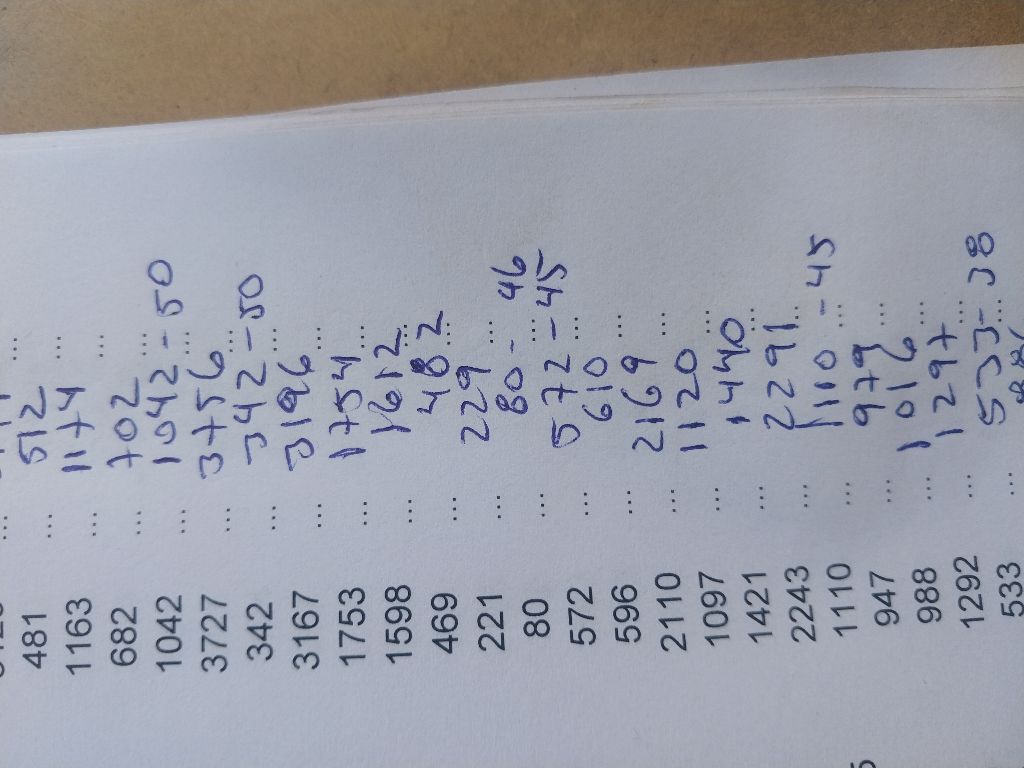 481 ... 512 ...
1163 ... 1174 ...
682 ... 702 ...
1042 ... 1042 - 50 ...
3727 ... 3756 ...
342 ... 342 - 50 ...
3167 ... 3196 ...
1753 ... 1754 ...
1598 ... 1612 ...
469 ... 482 ...
221 ... 229 ...
80 ... 80 - 46 ...
572 ... 572 - 45 ...
596 ... 610 ...
2110 ... 2169 ...
1097 ... 1120 ...
1421 ... 1440 ...
2243 ... 2291 ...
1110 ... 1110 - 45 ...
947 ... 979 ...
988 ... 1016 ...
1292 ... 1297 ...
533 ... 533 - 38 ...